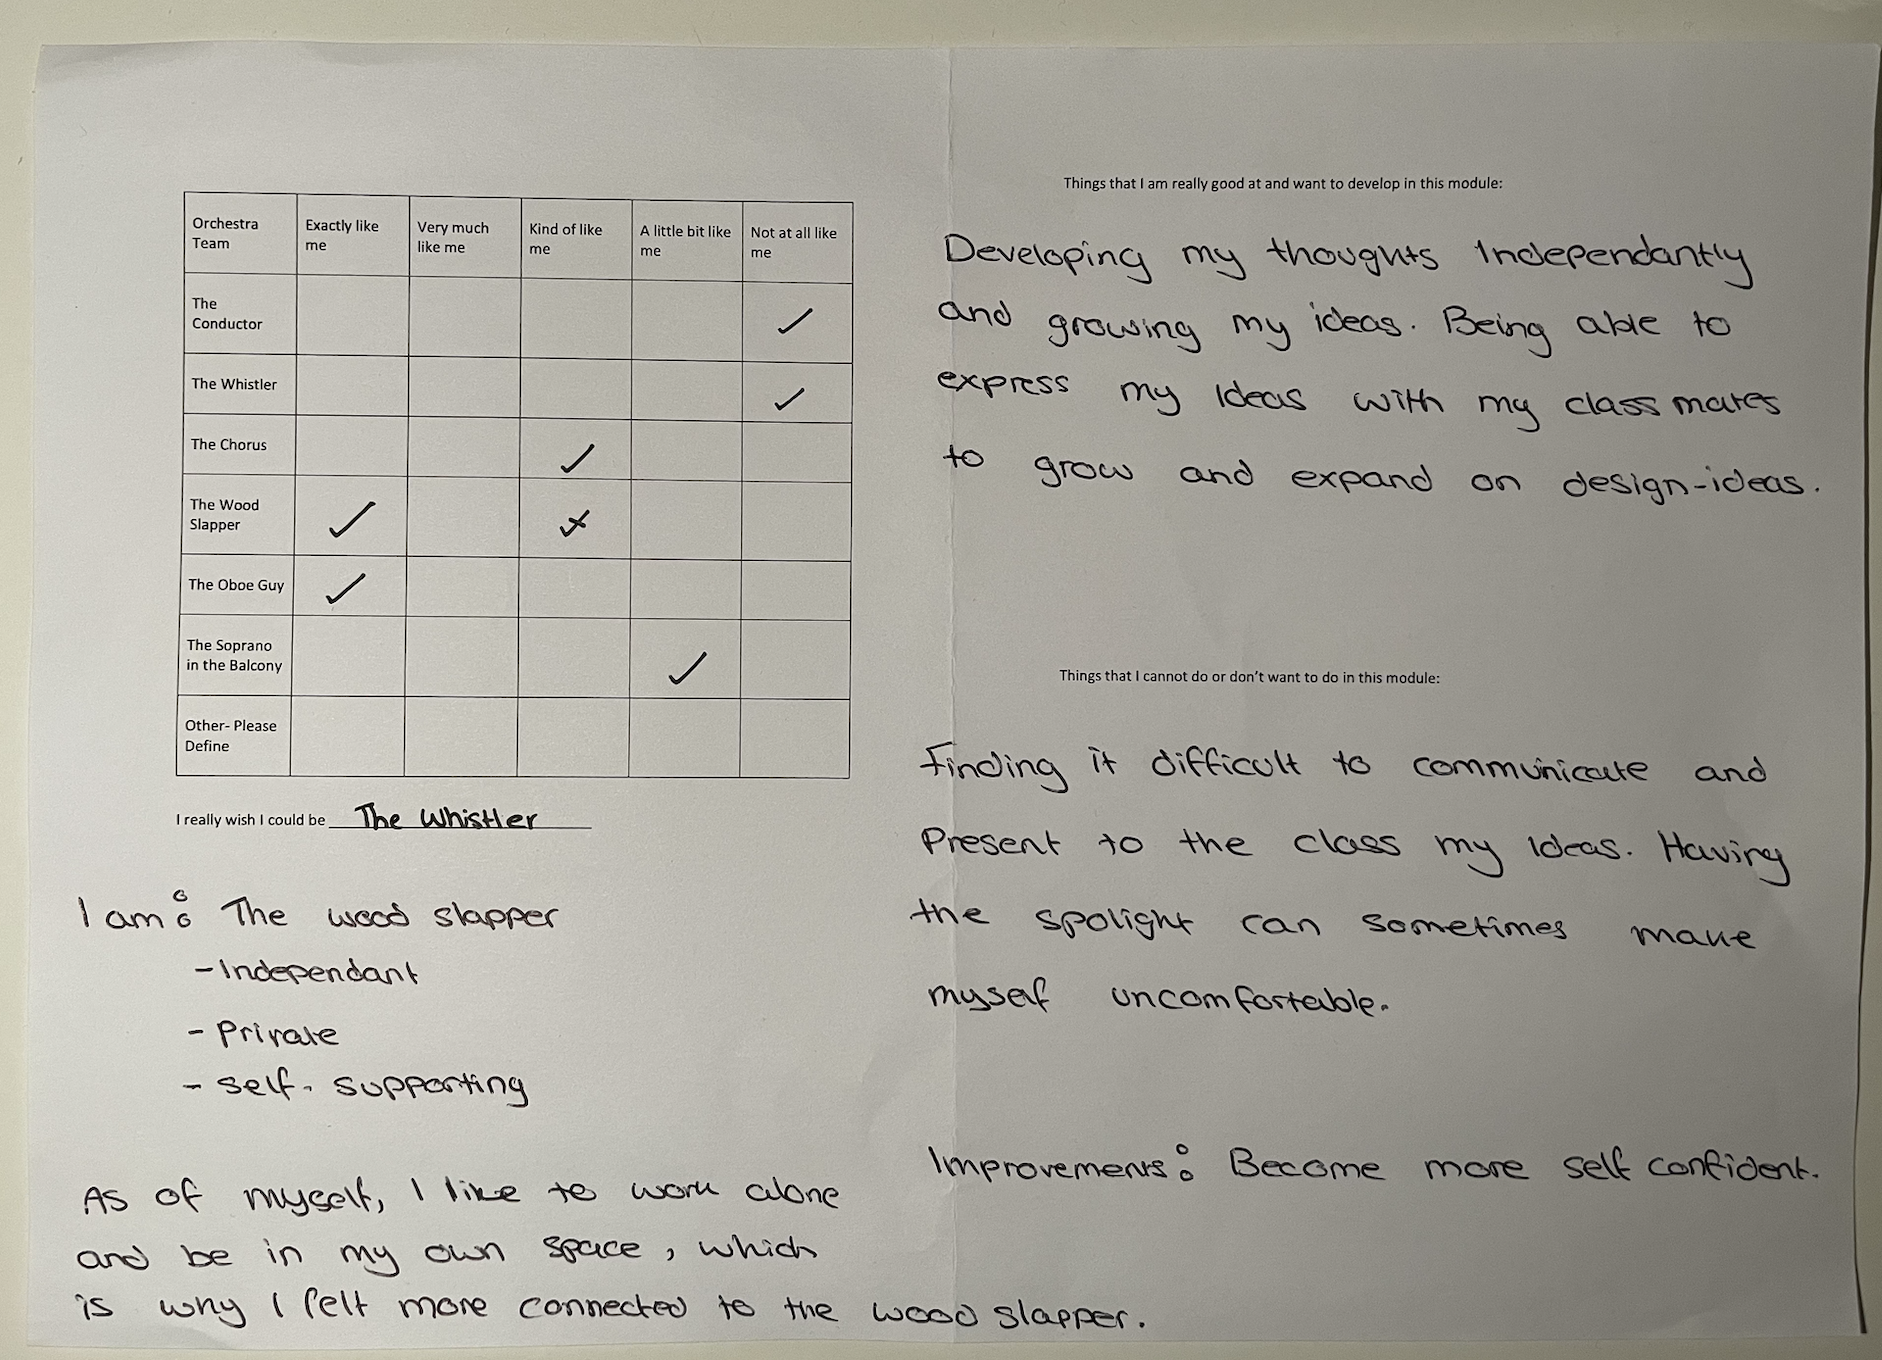 Orchestra Team
Exactly like me
Very much like me
Kind of like me
A little bit like me
Not at all like me
The Conductor
✓
The Whistler
✓
The Chorus
✓
The Wood Slapper
✓
The Oboe Guy
✓
The Soprano in the Balcony
✓
Other- Please Define
I really wish I could be The Whistler
I am: The wood slapper
- Independant
- Private
- self- supporting
As of myself, I like to work alone
and be in my own space, which
is why I felt more connected to the wood slapper.
Things that I am really good at and want to develop in this module:
Developing my thoughts Independantly
and growing my ideas. Being able to
express my Ideas with my classmates
to grow and expand on design-ideas.
Things that I cannot do or don't want to do in this module:
Finding it difficult to communicate and
Present to the class my Ideas. Having
the spolight can sometimes make
myself uncomfortable.
Improvements: Become more self confident.